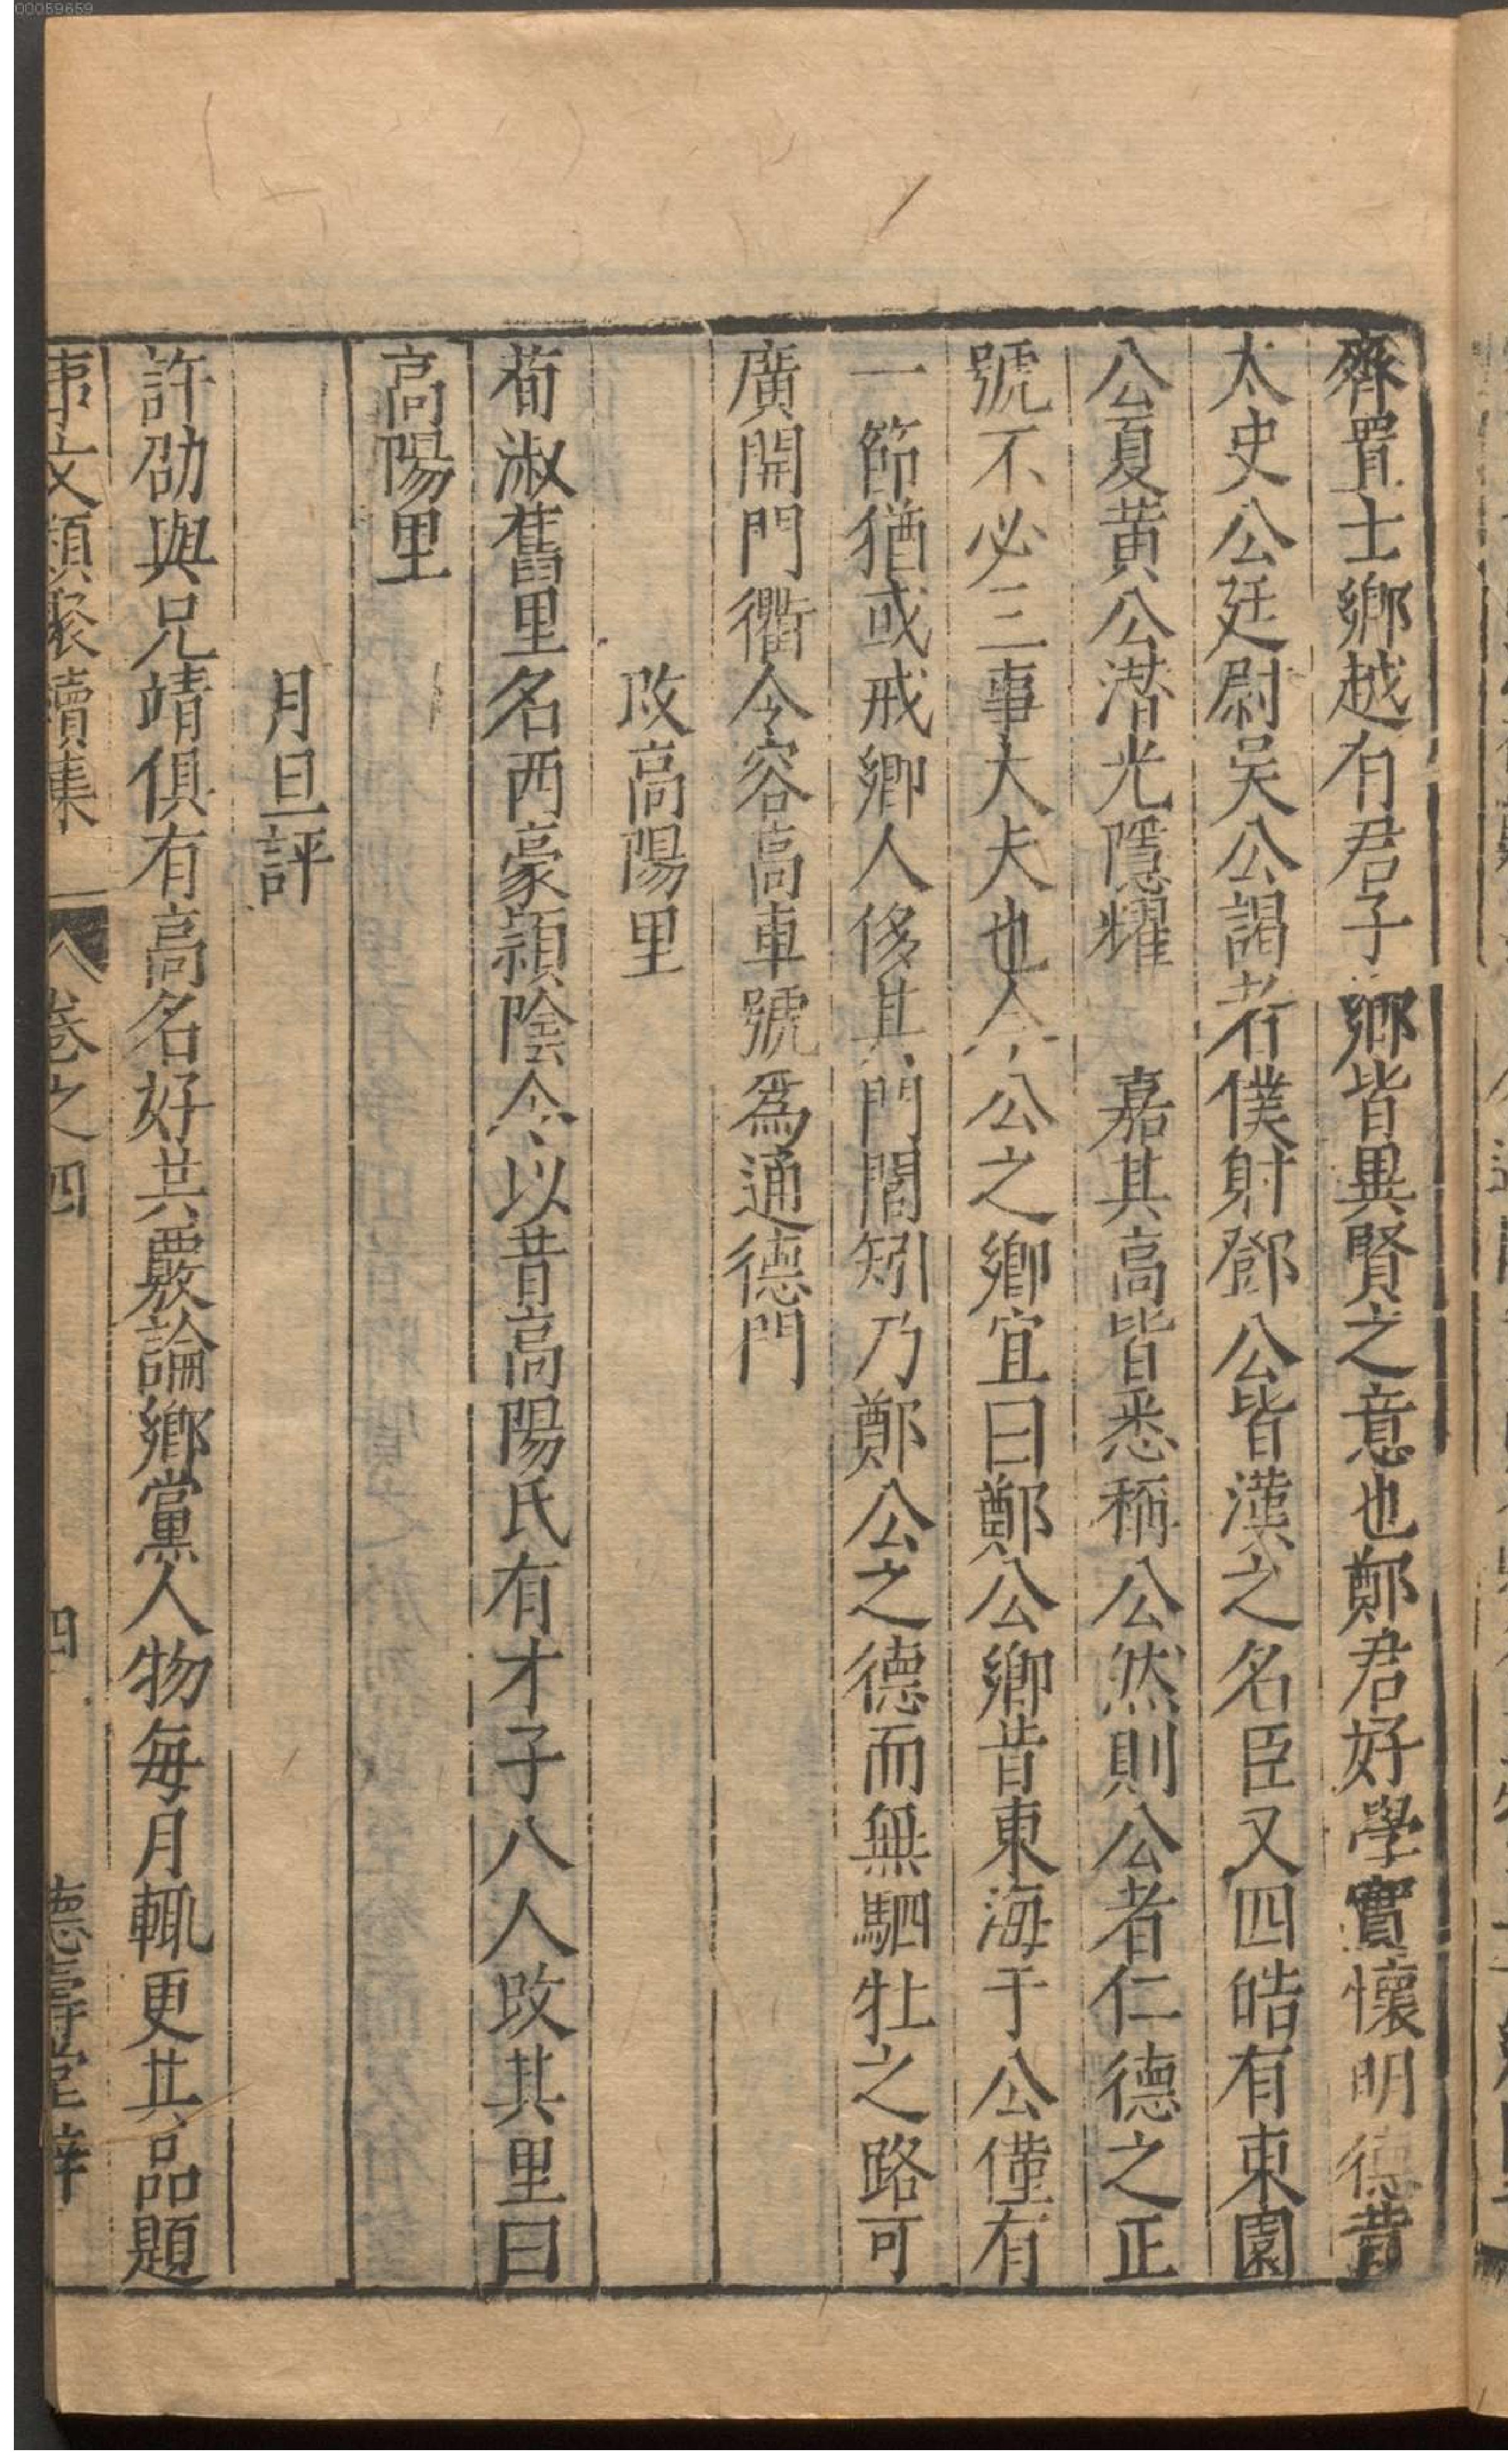 齊置士鄉越有君子鄉皆異賢之意也鄭君好學實懷明德昔
太史公廷尉吴公謁者僕射鄧公皆漢之名臣又四皓有東園
公夏黄公潜光隱耀嘉其高皆悉稱公然則公者仁德之正
號不必三事大夫也今公之鄉宜曰鄭公鄉昔東海于公僅有
一節猶或戒鄉人侈其門閭矧乃鄭公之德而無駟牡之路可
廣開門衢令容高車號爲通德門
改高陽里
荀淑舊里名西豪潁陰令以昔高陽氏有才子八人改其里曰
高陽里
月旦評
許劭與兄靖俱有高名好共覈論鄉黨人物每月輒更其品題
事文類聚續集 卷之四 四 德壽堂梓
00059659